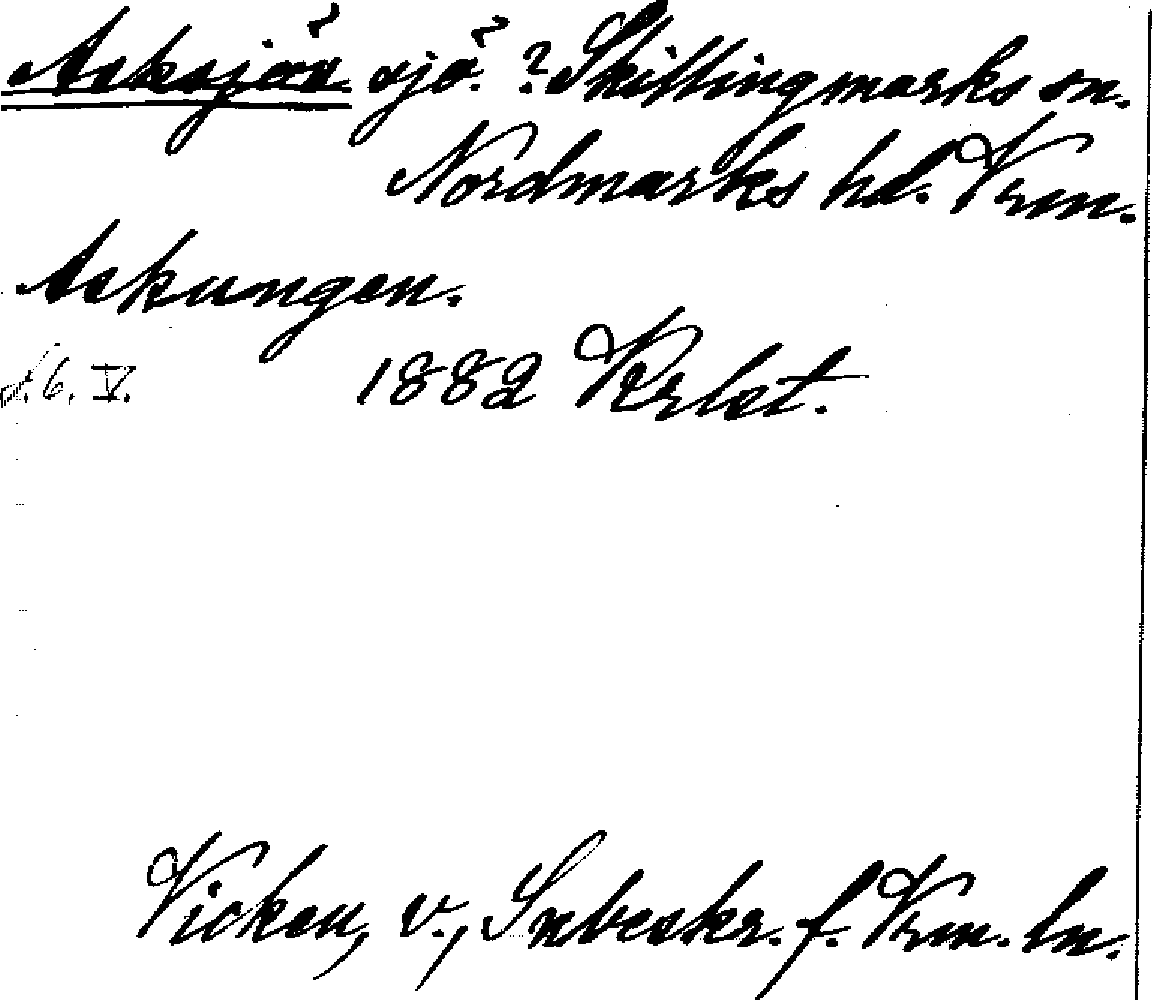 Asksjön sjö. ? Skillingmarks sn.
Nordmarks hd. Vrm.
Askungen.
f.6. V. 1882 Krlst.
Vicken, v., Snbeskr. f. Vrm. ln.